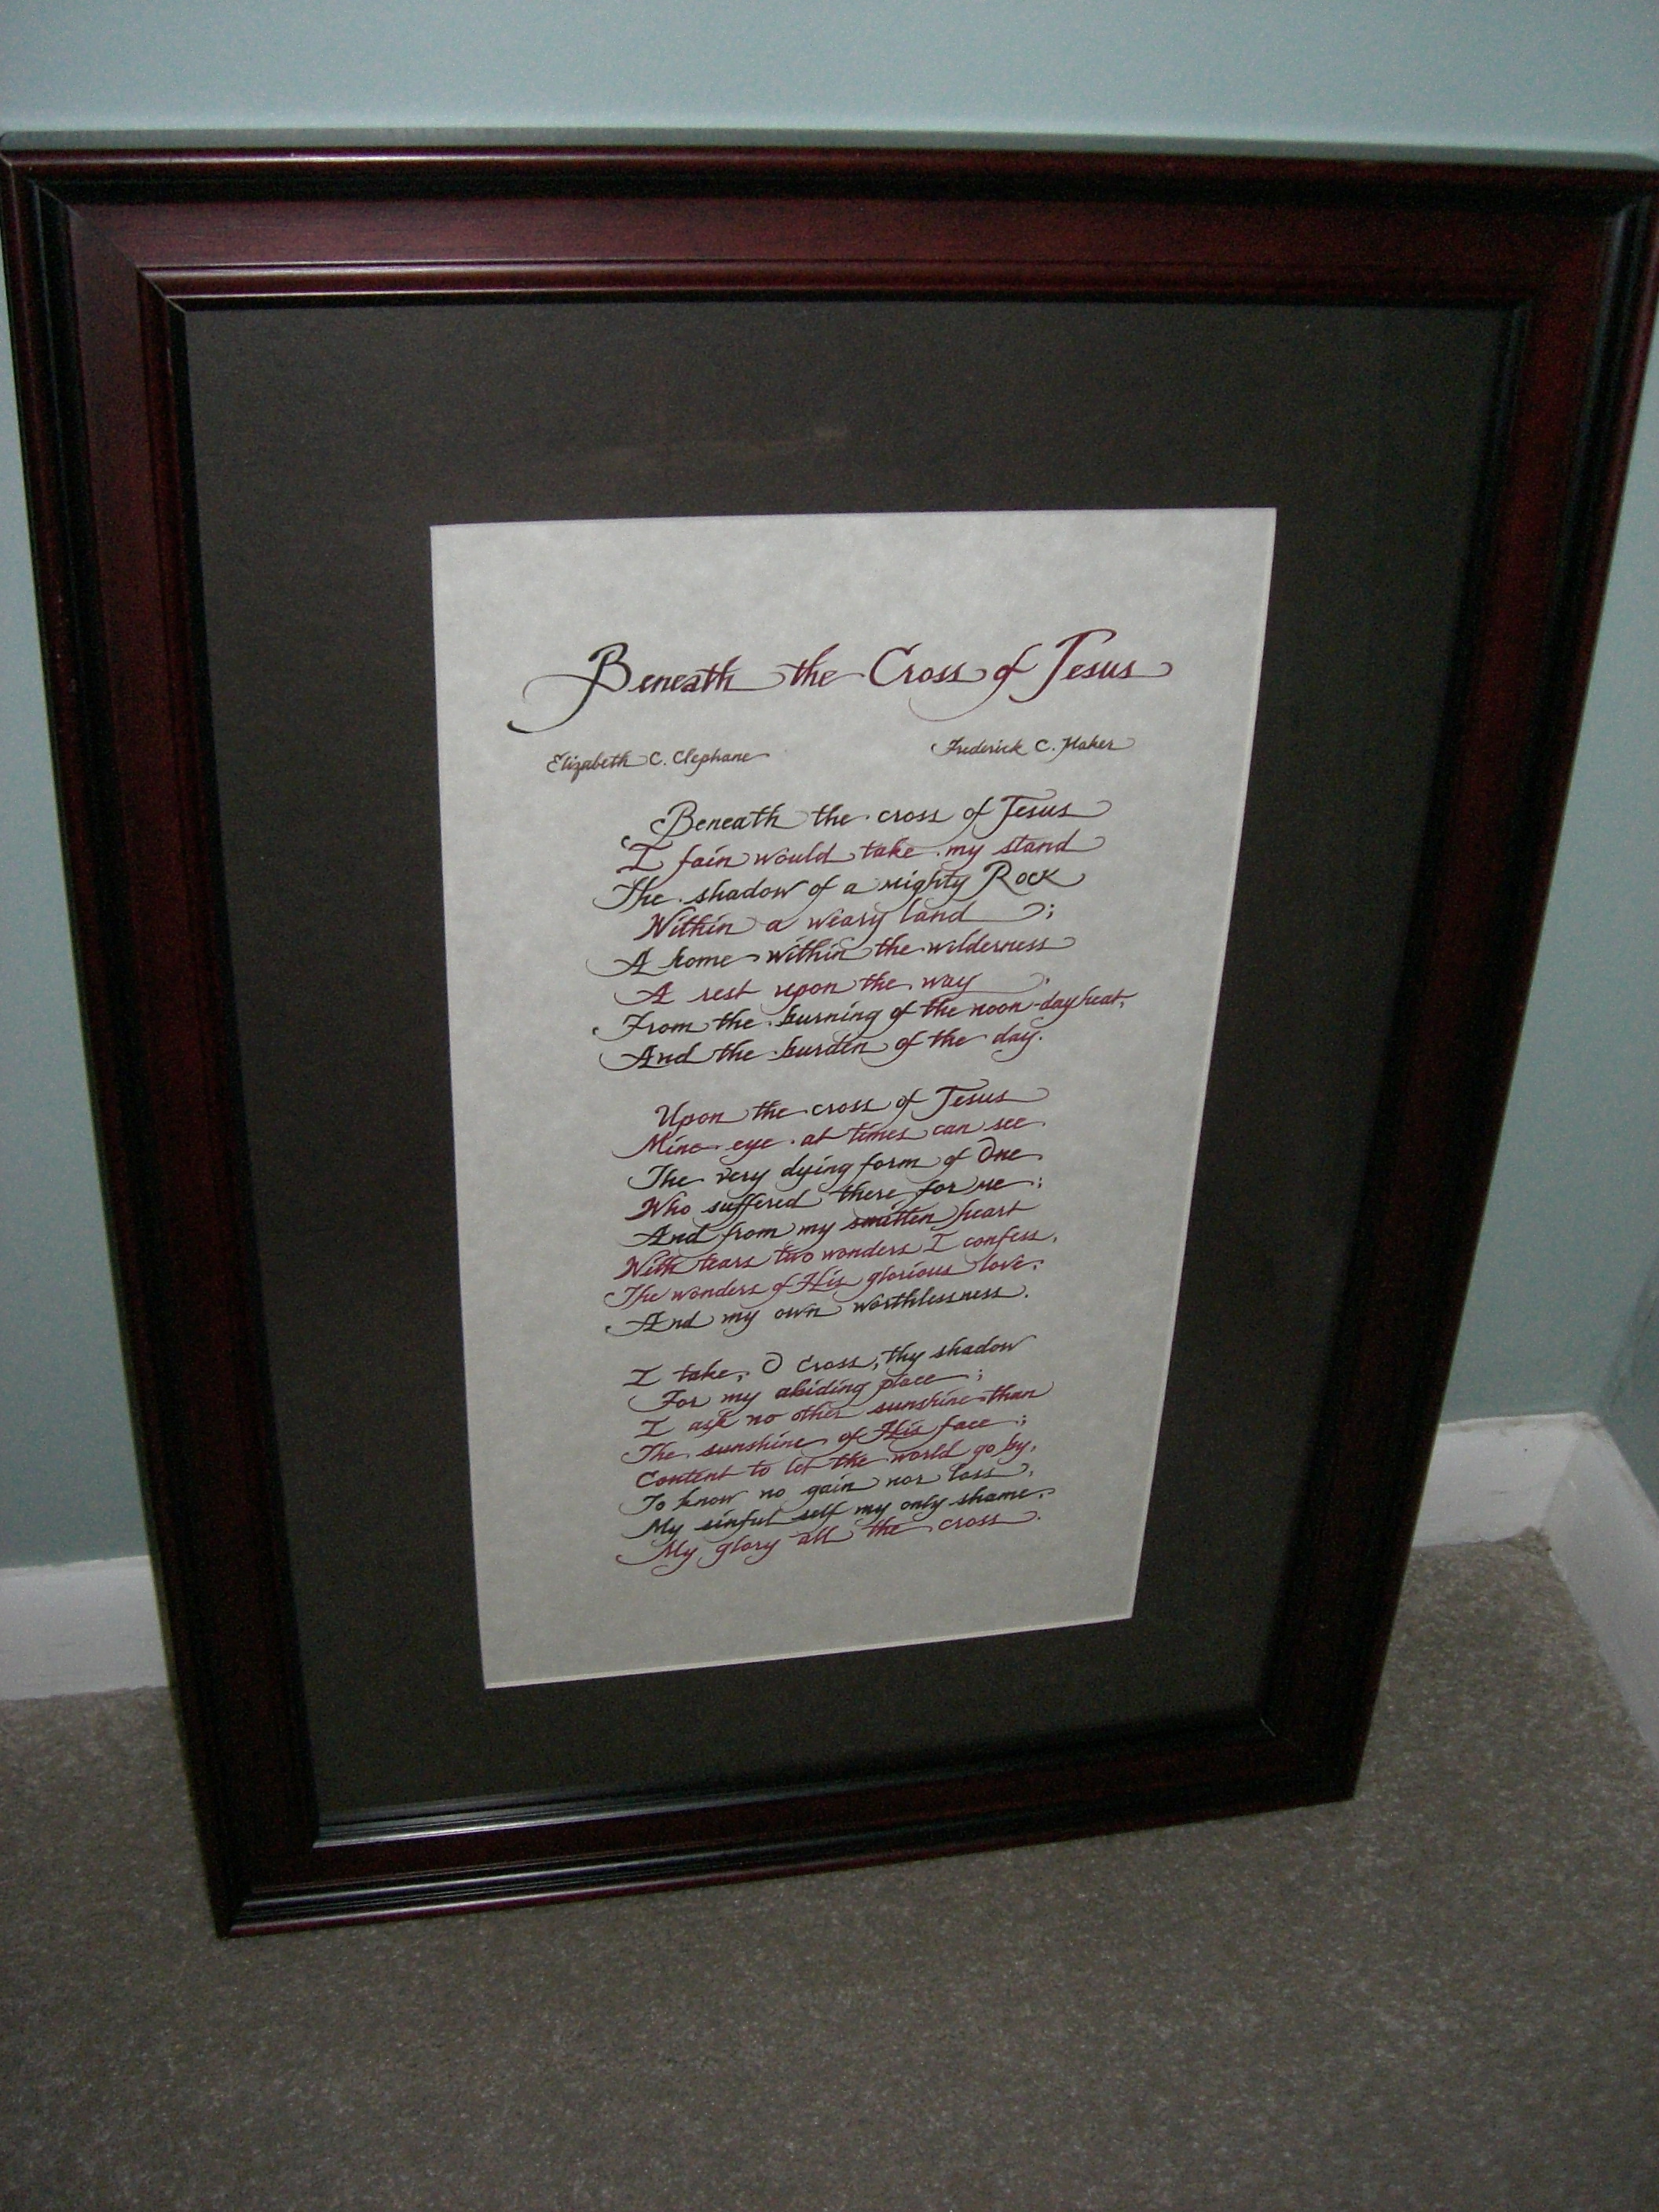 Beneath the Cross of Jesus
Elizabeth C. Clephane Frederick C. Maker
Beneath the cross of Jesus
I fain would take my stand
The shadow of a mighty Rock
Within a weary land ;
A home within the wilderness
A rest upon the way
From the burning of the noon-day heat,
And the burden of the day.
Upon the cross of Jesus
Mine eye at times can see
The very dying form of One
Who suffered there for me ;
And from my smitten heart
With tears two wonders I confess,
The wonders of His glorious love,
And my own worthlessness.
I take, O cross, thy shadow
For my abiding place ;
I ask no other sunshine than
The sunshine of His face ;
Content to let the world go by,
To know no gain nor loss,
My sinful self my only shame,
My glory all the cross.